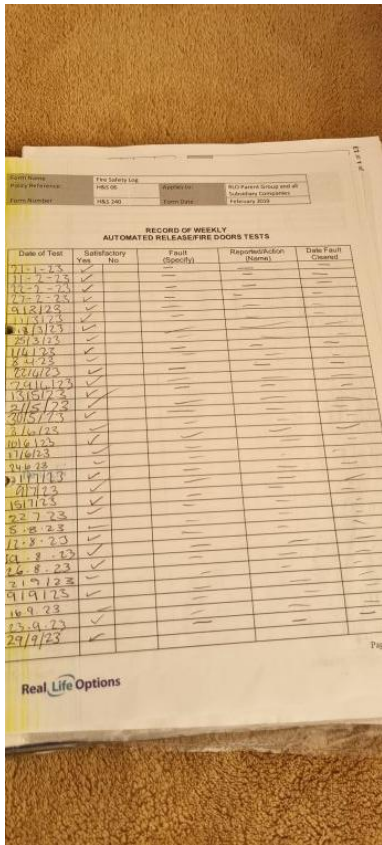 Form Name Fire Safety Log
Policy Reference: H&S 05 Applies to: RLO Parent Group and all Subsidiary Companies
Form Number H&S 240 Form Date February 2019
RECORD OF WEEKLY
AUTOMATED RELEASE/FIRE DOORS TESTS
Date of Test Satisfactory Fault Reported/Action Date Fault
Yes No (Specify) (Name) Cleared
21-1-23 ✓ — — —
11-2-23 ✓ — — —
27-2-23 ✓ — — —
11/3/23 ✓ — — —
18/3/23 ✓ — — —
25/3/23 ✓ — — —
1/4/23 ✓ — — —
8.4.23 ✓ — — —
22/4/23 ✓ — — —
29/4/23 ✓ — — —
13/5/23 ✓ — — —
30/5/23 ✓ — — —
10/6/23 ✓ — — —
17/6/23 ✓ — — —
24.6.23 ✓ — — —
15/7/23 ✓ — — —
22.7.23 ✓ — — —
5.8.23 ✓ — — —
12.8.23 ✓ — — —
19.8.23 ✓ — — —
26.8.23 ✓ — — —
2/9/23 ✓ — — —
9/9/23 ✓ — — —
16.9.23 ✓ — — —
23.9.23 ✓ — — —
29/9/23 ✓ — — —
Pag
Real Life Options